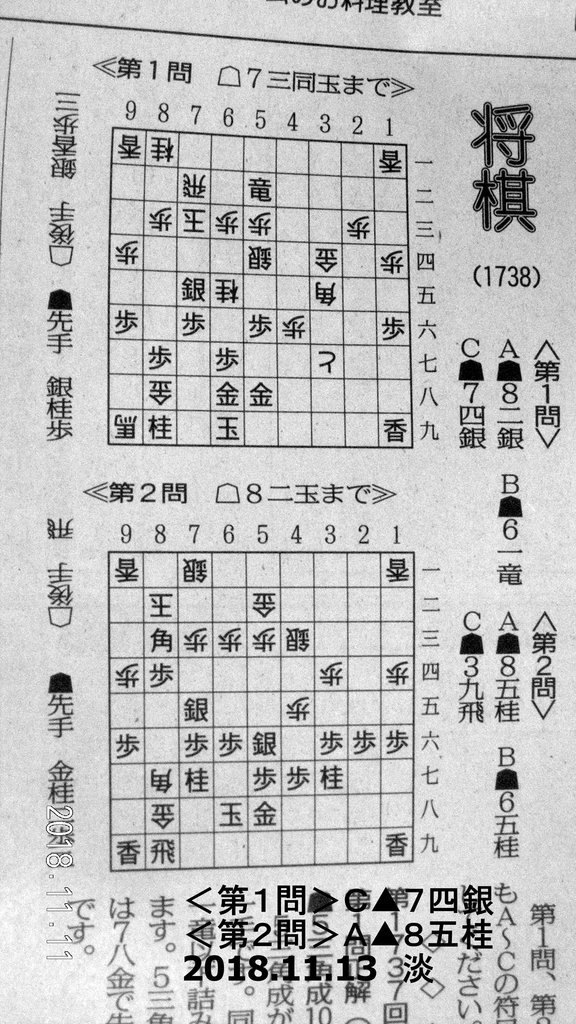 のお料理教室
将棋
(1738)
≪第1問 ☖7三同玉まで≫
9 8 7 6 5 4 3 2 1
香 桂 香 一
飛 竜 二
歩 王 歩 歩 歩 三
歩 銀 金 歩 四
銀 桂 角 五
歩 歩 歩 歩 歩 六
歩 歩 と 七
金 金 金 八
馬 桂 玉 香 九
☗先手 銀桂歩
☖後手 銀香歩三
<第1問>
A☗8二銀
B☗6一竜
C☗7四銀
≪第2問 ☖8二玉まで≫
9 8 7 6 5 4 3 2 1
香 銀 香 一
王 金 二
角 歩 歩 歩 銀 三
歩 歩 歩 歩 四
銀 歩 五
歩 歩 歩 銀 歩 歩 歩 六
角 桂 歩 歩 桂 七
金 玉 金 八
香 飛 香 九
☗先手 金桂
☖後手 飛
<第2問>
A☗8五桂
B☗6五桂
C☗3九飛
第1問、第
もA〜Cの符
ださい
第1737回
第1問正解
角成10
角成が
同
竜 詰み
ます。5三角
は7八金で先
です。
2018.11.11
<第1問>C▲7四銀
<第2問>A▲8五桂
2018.11.13 淡